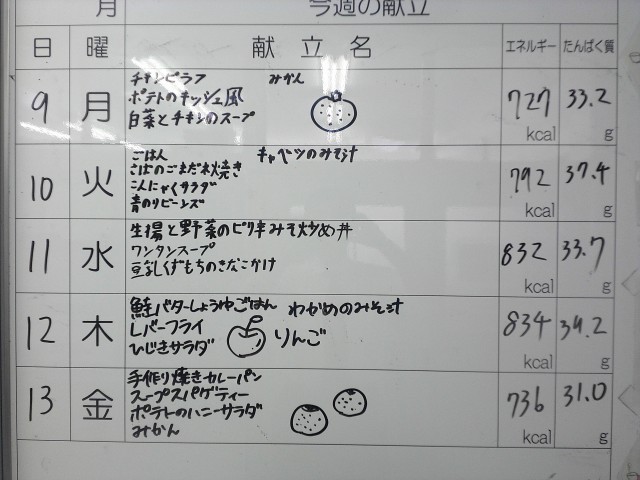 月 今週の献立
日 曜 献立名 エネルギー たんぱく質
9 月 チキンピラフ みかん 727 kcal 33.2 g
ポテトのキッシュ風
白菜とチキンのスープ
10 火 ごはん キャベツのみそ汁 792 kcal 37.4 g
さばのごまだれ焼き
こんにゃくサラダ
青のりビーンズ
11 水 生揚と野菜のピリ辛みそ炒め丼 832 kcal 33.7 g
ワンタンスープ
豆乳くずもちのきなこかけ
12 木 鮭バターしょうゆごはん わかめのみそ汁 834 kcal 34.2 g
レバーフライ
ひじきサラダ りんご
13 金 手作り焼きカレーパン 736 kcal 31.0 g
スープスパゲティー
ポテトのハニーサラダ
みかん